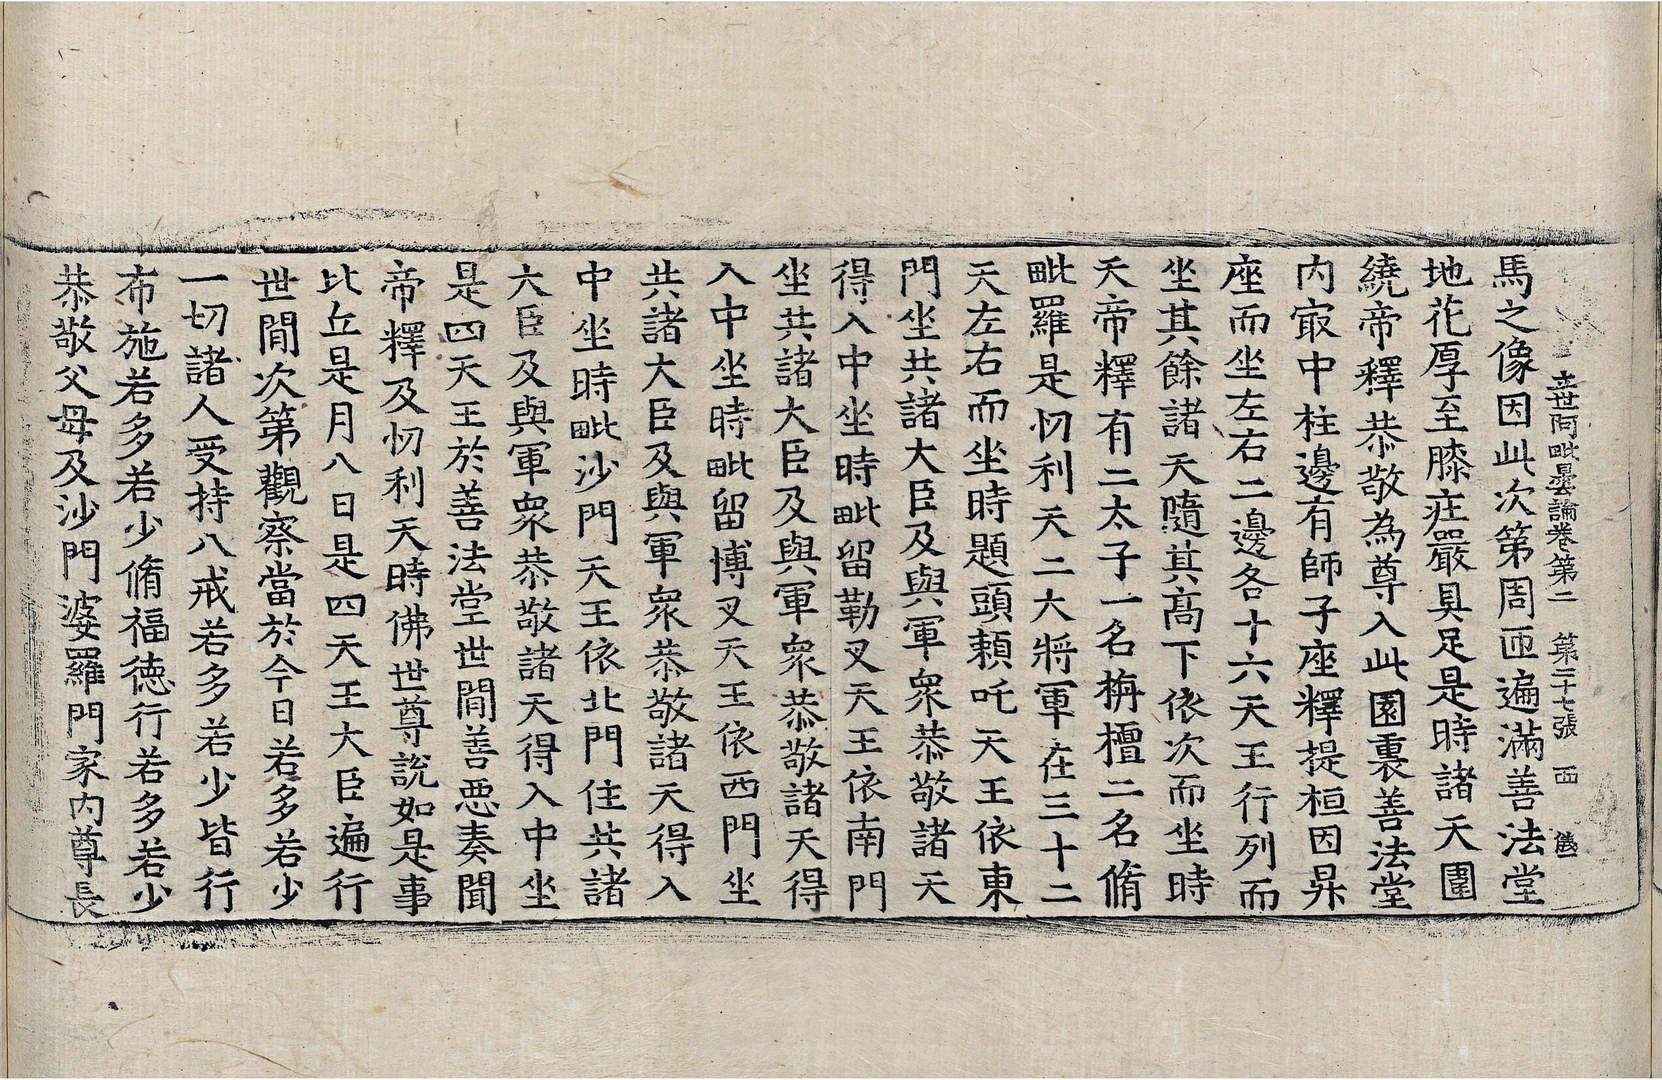 立世阿毗曇論卷第二 第二十七張 西 儀
馬之像因此次第周匝遍滿善法堂
地花厚至膝㽵嚴具足是時諸天圍
繞帝釋恭敬為尊入此園裏善法堂
内㝡中柱邊有師子座釋提桓因昇
座而坐左右二邊各十六天王行列而
坐其餘諸天隨其高下依次而坐時
天帝釋有二太子一名栴檀二名脩
毗羅是忉利天二大將軍在三十二
天左右而坐時題頭頼吒天王依東
門坐共諸大臣及與軍衆恭敬諸天
得入中坐時毗留勒叉天王依南門
坐共諸大臣及與軍衆恭敬諸天得
入中坐時毗留博叉天王依西門坐
共諸大臣及與軍衆恭敬諸天得入
中坐時毗沙門天王依北門住共諸
大臣及與軍衆恭敬諸天得入中坐
是四天王於善法堂世間善惡奏聞
帝釋及忉利天時佛世尊說如是事
比丘是月八日是四天王大臣遍行
世間次第觀察當於今日若多若少
一切諸人受持八戒若多若少皆行
布施若多若少脩福德行若多若少
恭敬父母及沙門婆羅門家内尊長